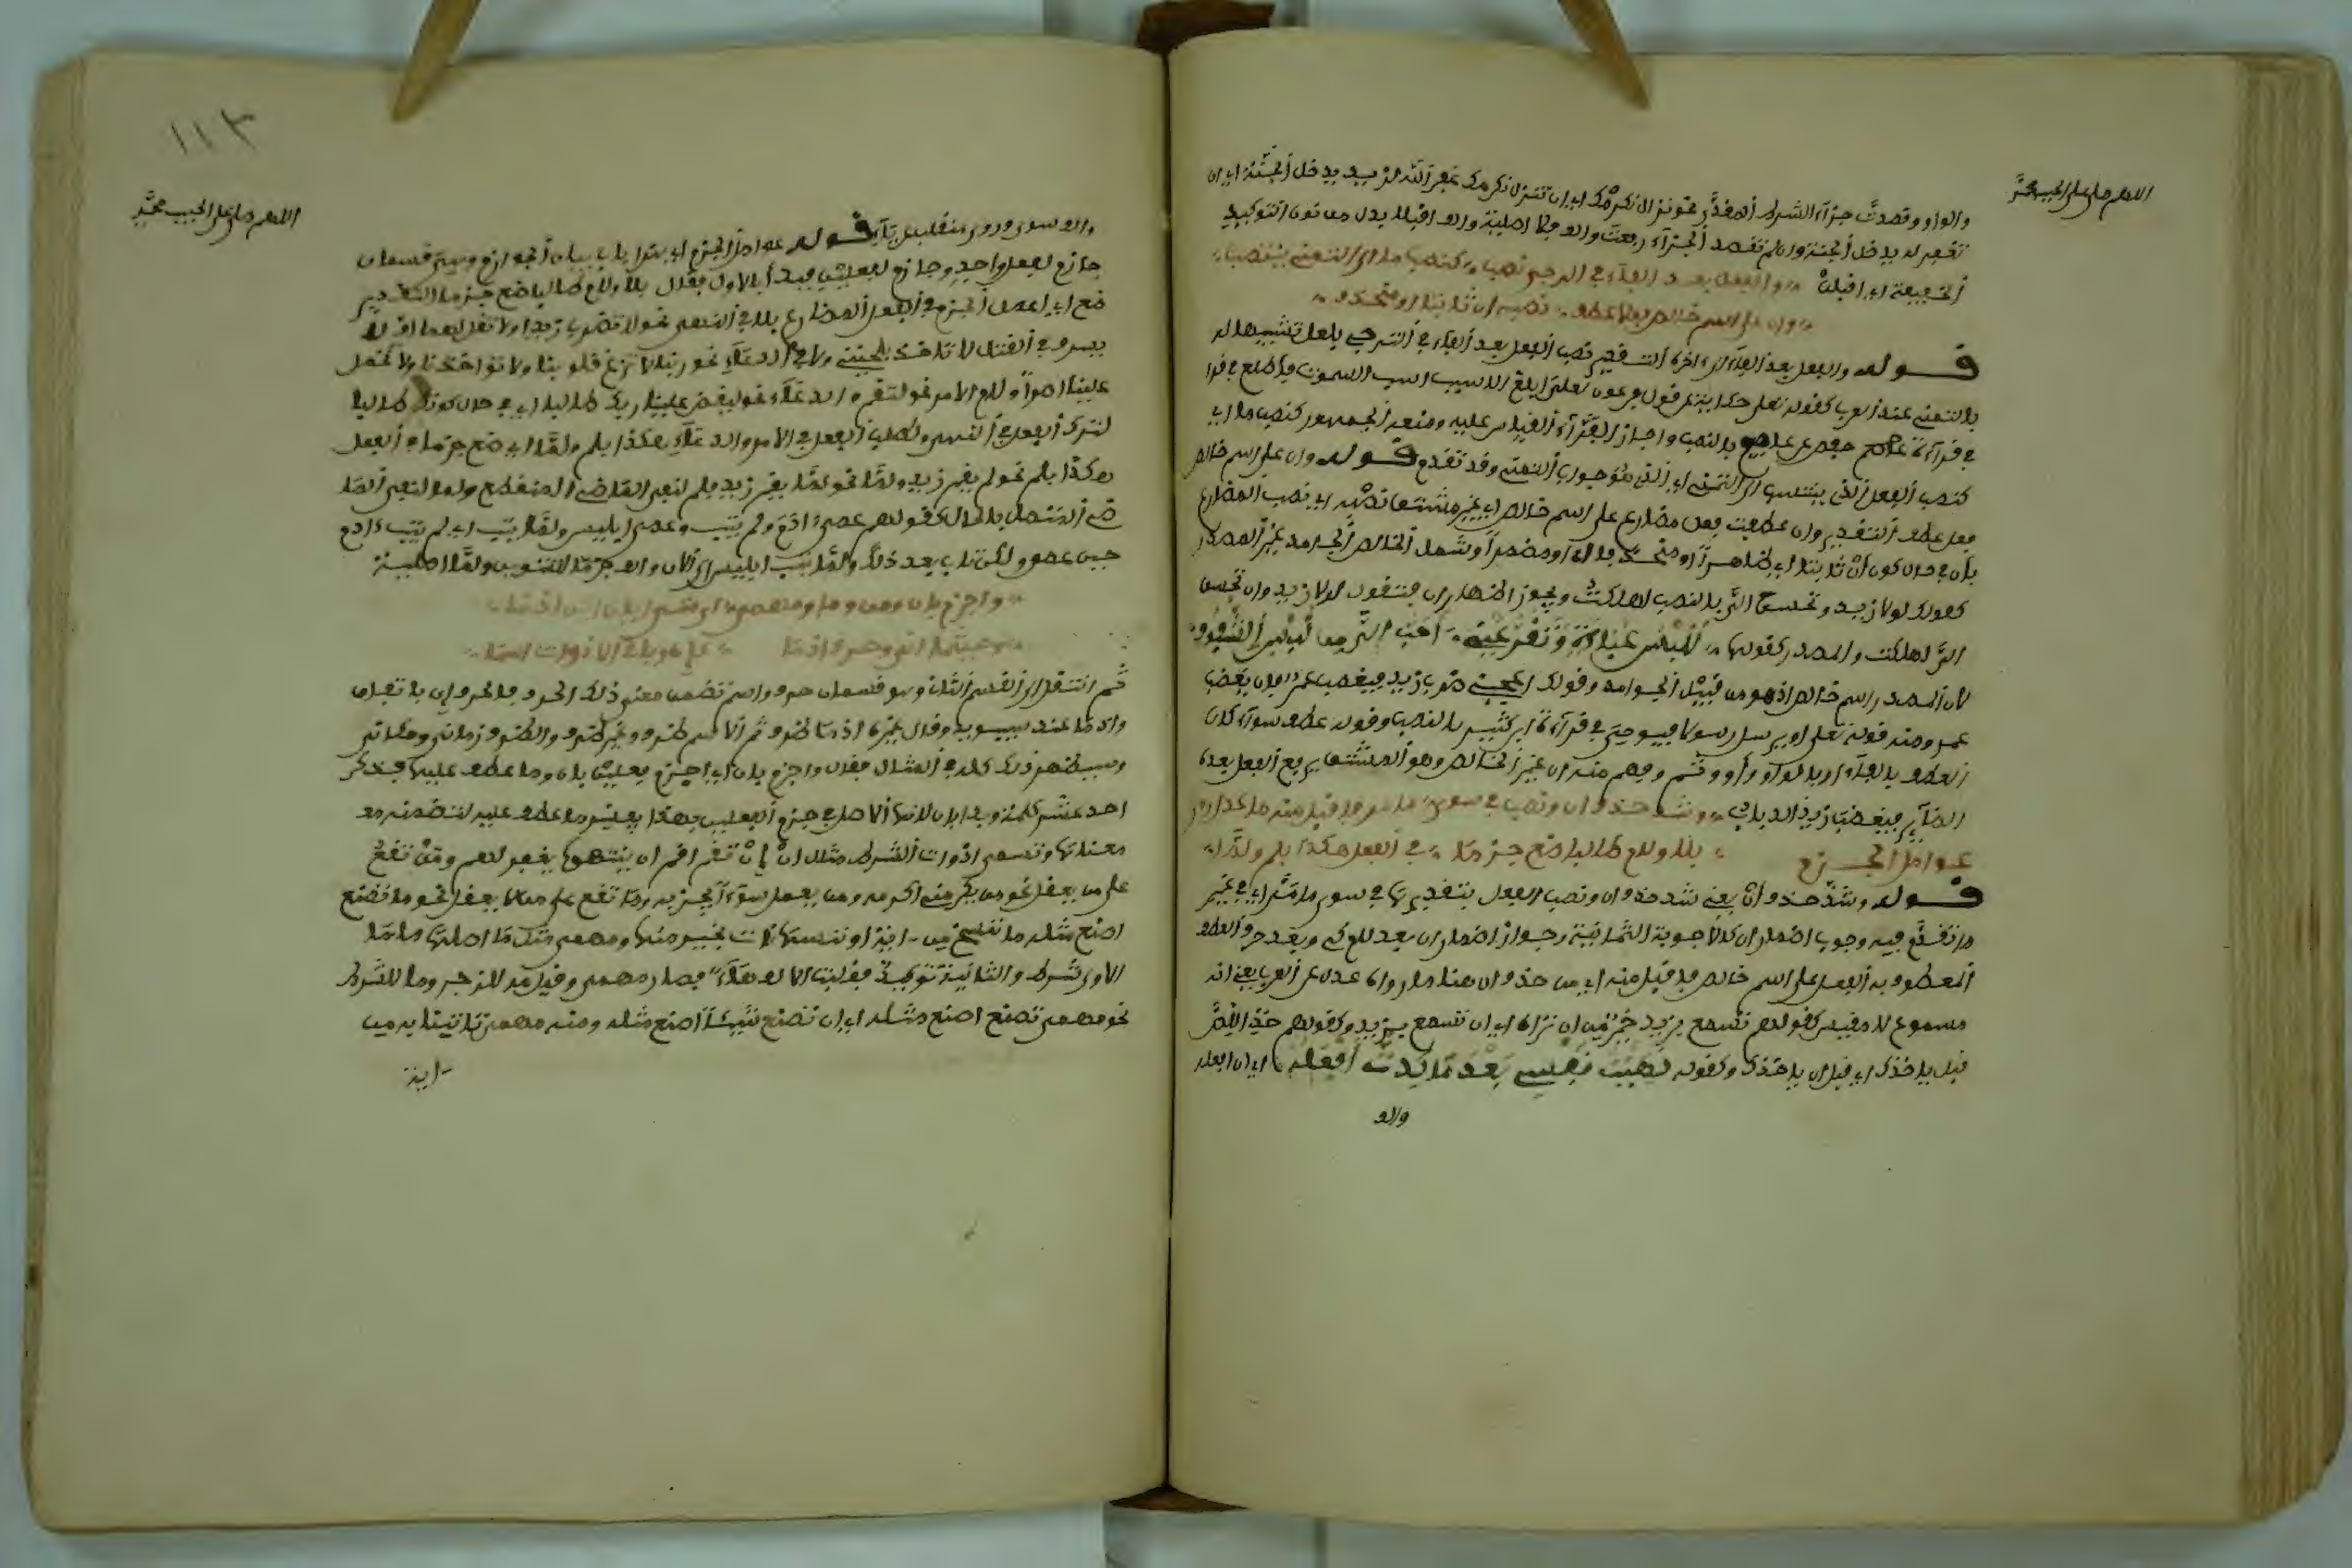 اللهم صل على الحبيب محمد
والواو وقصدت جزاء الشرط المقدر نحو نزل نكرمك اي ان تنزل نكرمك غفر الله لزيد يدخل الجنة اي ان
تغفر له يدخل الجنة وان لم تقصد الجزاء رفعت والف اصلية والف اقبلا بدل من نون التوكيد
الخفيفة اي اقبلن والفعل بعد الفاء في الرجا نصب كنصب ما الى التمني ينتسب
وان على اسم خالص فعل عطف تنصبه ان ثابتا او منحذف
قوله والفعل بعد الفاء الى اخره التقدير نصب الفعل بعد الفاء في الترجي بلعل تشبيها له
بالتمني عند العرب كقوله تعلى حكاية عن فرعون لعلي ابلغ الاسباب اسباب السموت فاطلع في
في قراءة عاصم حفص عن بالنصب واجاز الفراء القياس عليه ومنعه الجمهور كنصب ما اي
كنصب الفعل الذي ينتسب الى التمني اي الذي هو جواب التمني وقد تقدم قوله وان على اسم خالص
فعل عطف التقدير وان عطفت فعل مضارع على اسم خالص اي غير مشتق تنصبه اي نصب المضارع
بان في حال كون ان ثابتا اي ظاهرا او منحذف اي او مضمرا وشمل الخالص الجامد غير المصدر
كقولك لولا زيد وتحسن الي بالنصب لهلكت ويجوز اظهار ان فتقول لولا زيد وان تحسن
الي لهلكت والمصدر كقولها للبس عباءة وتقر عيني احب الي من لبس الشفوف
لان المصدر اسم خالص اذ هو من قبيل الجوامد وقولك اعجبني ضرب زيد فيغضب عمر اي وان يغضب
عمر ومنه قوله تعلى او يرسل رسولا فيوحي في قراءة ابن كثير بالنصب وقوله عطف سواء كان
العطف بالفاء او بالواو او او وثم وفهم منه ان غير الخالص وهو المشتق يرفع الفعل بعده
الطائر فيغضب زيد الذباب وشذ حذف ان ونصب في سوى ما مر فاقبل منه ما عدل روى
عوامل الجزم بلا ولام طالبا ضع جزما في الفعل هكذا بلم ولما
قوله وشذ حذف ان يعني شذ حذف ان ونصب الفعل بتقديرها في سوى ما مر اي في غير
ما تقدم فيه وجوب اضمار ان كالاجوبة الثمانية وجواز اضمار ان بعد لام كي وبعد حرف العطف
المعطوف به الفعل على اسم خالص فاقبل منه اي من حذف ان هنا ما رواه عدل عن العرب يعني انه
مسموع لا مقيس كقولهم تسمع بزيد خير من ان تراه اي ان تسمع بزيد وكقولهم خذ اللص
قبل ياخذك اي قبل ان ياخذك وكقوله نهنهت نفسي بعد ما كدت افعله اي ان افعله
والف
١١٣
اللهم صل على الحبيب محمد
والف سوى وروى منقلبة عن ياء قوله عوامل الجزم اي هذا باب بيان الجوازم وهي قسمان
جازم لفعل واحد وجازم لفعلين فبدا بالاول فقال بلا ولام طالبا ضع جزما التقدير
ضع اي اعمل الجزم في الفعل المضارع بلا في النهي نحو لا تضرب زيدا ولا تقل لهما اف لا
يسرف في القتل لا تاخذ بلحيتي ولا في الدعاء نحو ربنا لا تزغ قلوبنا ولا تواخذنا ولا تحمل
علينا اصرا ولام الامر نحو لتقم والدعاء نحو ليقض علينا ربك طالبا اي في حال كونك طالبا
لترك الفعل في النهي ولطلب الفعل في الامر والدعاء هكذا بلم ولما اي ضع جزما في الفعل
هكذا بلم نحو لم يقم زيد ولما نحو لما يقم زيد فلم لنفي الماضي المنقطع ولما لنفي الما
ضي المتصل بالحال كقولهم عصى ادم ولم يتب وعصى ابليس ولما يتب اي لم يتب ادم
حين عصى ولكن تاب بعد ذلك ولما يتب ابليس الى الان والف جزما للتنوين ولما اصلية
واجزم بان ومن وما ومهما اي متى ايان اين اذما
وحيثما انى وحرف اذما كان وباقي الادوات اسما
ثم انتقل الى القسم الثاني وهو قسمان حرف واسم تضمن معنى ذلك الحرف فالحرف ان باتفاق
واذما عند سيبويه وقال غيره اذما ظرف ثم الاسم ظرف وغير ظرف والظرف زماني ومكاني
وسيظهر ذلك كله في المثال فقال واجزم بان اي اجزم فعلين بان وما عطف عليها فذكر
احد عشر كلمة وبدا بان لانها الاصل في جزم الفعلين وهذا يعني ما عطف عليه لتضمنه مع
معناها وتسمى ادوات الشرط مثال ان ان تقم اقم ان ينتهوا يغفر لهم ومن تقع
على من يعقل نحو من يكرمني اكرمه ومن يعمل سوءا يجز به وما تقع على ما لا يعقل نحو ما تصنع
اصنع مثله ما ننسخ من اية او ننسها نات بخير منها ومهما مثل ما اصلها ما ما
الاولى شرط والثانية توكيد فقلبت الالف هاء فصار مهما وقيل مه للزجر وما للشرط
نحو مهما تصنع اصنع مثله اي ان تصنع شيئا اصنع مثله ومنه مهما تاتنا به من
اية